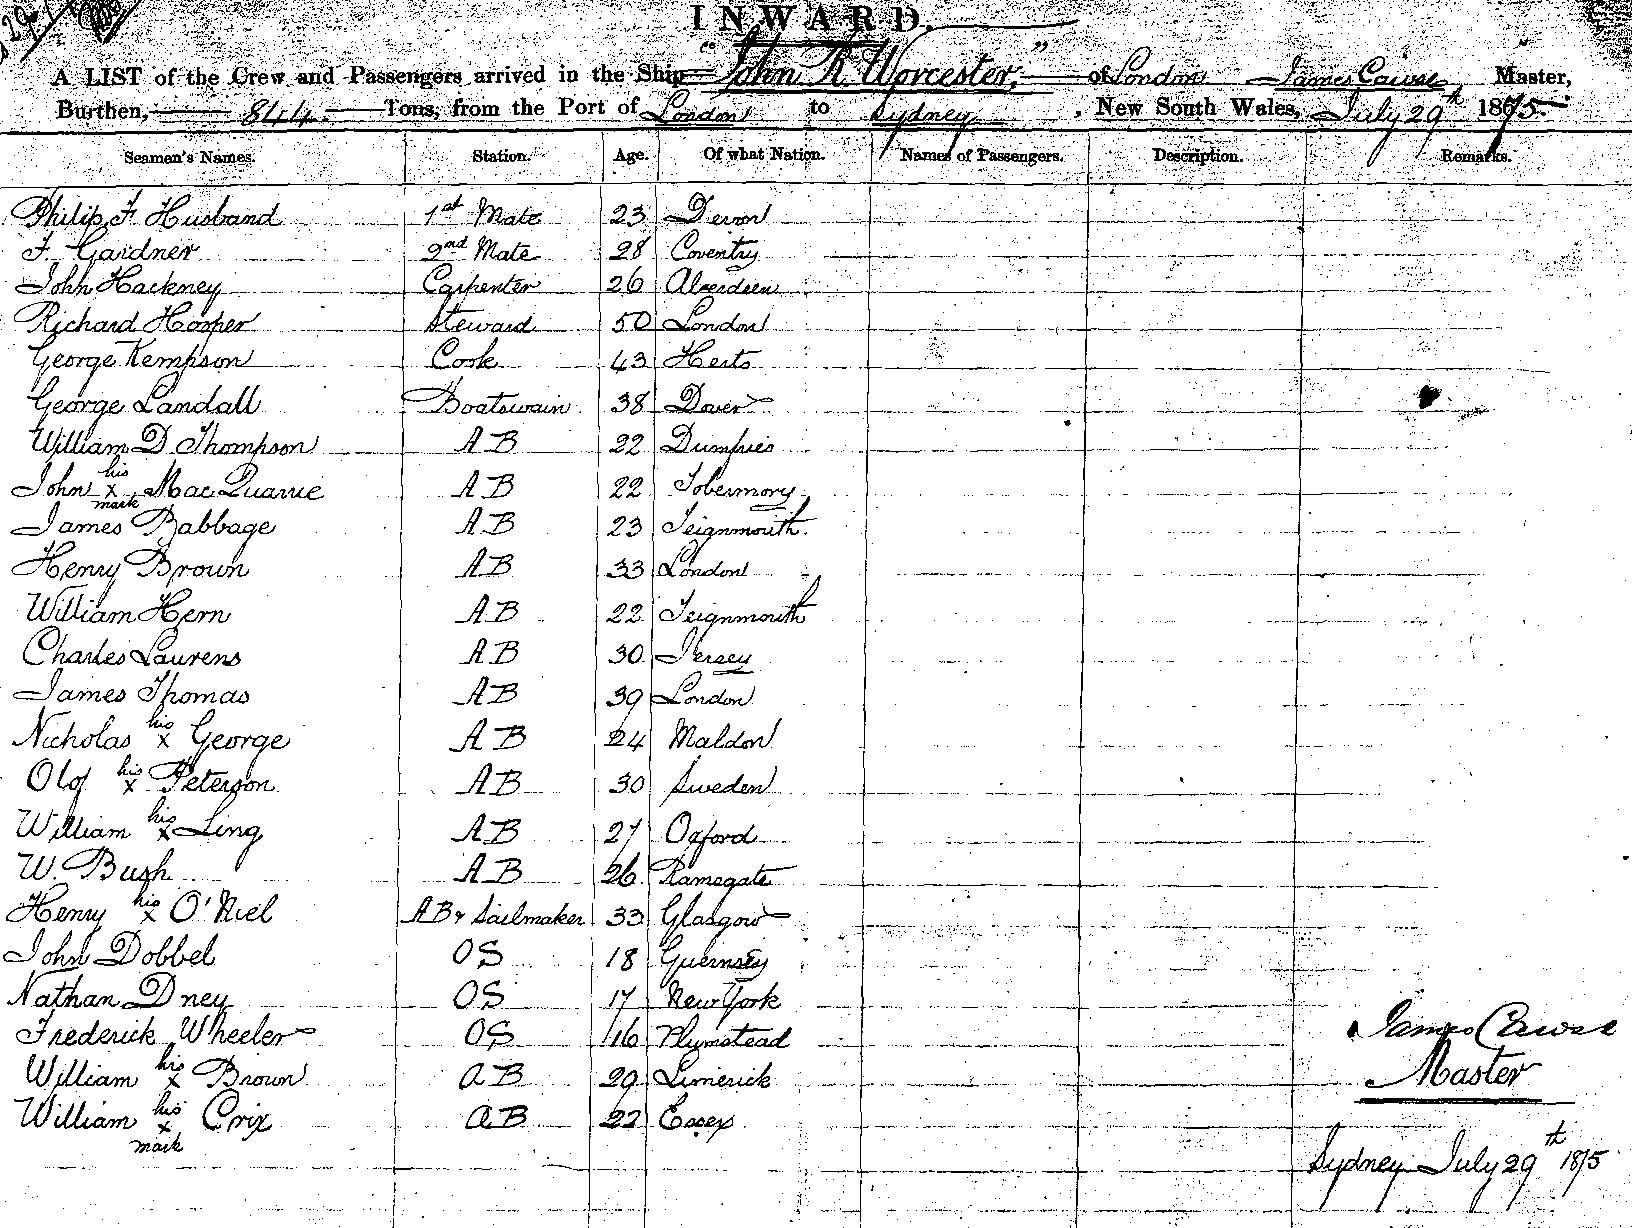 INWARD.
A LIST of the Crew and Passengers arrived in the Ship "John R. Worcester," of London James Cawse Master,
Burthen, 844 Tons, from the Port of London to Sydney, New South Wales, July 29th 1875.
Seamen's Names. Station. Age. Of what Nation. Names of Passengers. Description. Remarks.
Philip F Husband 1st Mate 23 Devon
F. Gardner 2nd Mate 28 Coventry
John Hackney Carpenter 26 Aberdeen
Richard Hooper Steward 50 London
George Kempson Cook 43 Herts
George Landall Boatswain 38 Dover
William D Thompson AB 22 Dumfries
John his x mark MacQuarrie AB 22 Tobermory
James Babbage AB 23 Teignmouth
Henry Brown AB 33 London
William Hern AB 22 Teignmouth
Charles Laurens AB 30 Jersey
James Thomas AB 39 London
Nicholas his x George AB 24 Maldon
Olof his x Peterson AB 30 Sweden
William his x Ling AB 27 Oxford
W. Bush AB 26 Ramsgate
Henry his x O'Niel AB & Sailmaker 33 Glasgow
John Dobbel OS 18 Guernsey
Nathan Dney OS 17 New York
Frederick Wheeler OS 16 Plumstead
William his x Brown AB 29 Limerick
William his x mark Crix AB 22 Essex
James Cawse
Master
Sydney July 29th 1875